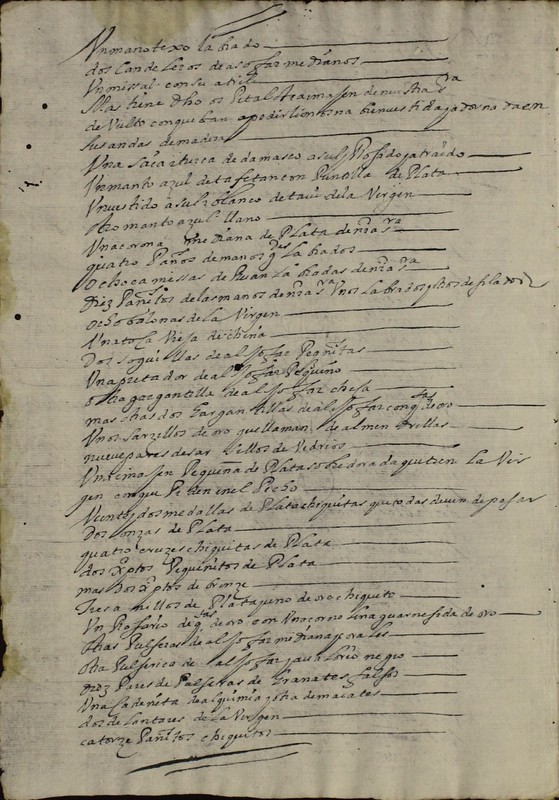 Un manotexo labrado
dos Candeleros de asofar medianos
Un missal con su atril
Mas tiene dho ospital otra imajen de nuestra sra
de Vulto con que ban a pedir limosna bien vestida y adornada en
sus andas de madera
Una saia turca de damasco asul Rosado y atraido
Un manto azul de tafetan con Puntilla de Plata
Un vestido asul y blanco de tavi de la Virgen
otro manto azul llano
Una corona mediana de Plata de nra sra
quatro Paños de manos gdes labrados
ocho camissas de Ruan labradas de nra sra
Diez Pañitos de las manos de nra sra Unos labrados y otros desilados
ocho balonas de la Virgen
Una toca Vieja de china
Dos soguillas de aljofar Pequeñitas
Un apretador de aljofar Pequeño
otra gargantilla de aljofar chica
mas otras dos Gargantillas de aljofar con qtas de oro
Unos sarzillos de oro que llaman de almendrillas
nueve pares de sarzillos de Vidrios
Un imajen Pequena de Plata sobredorada que tiene La Vir
gen con que Piden en el Pecho
Veinte y dos medallas de Plata chiquitas que todas deven de pesar
Dos onzas de Plata
quatro cruzes chiquitas de Plata
dos Xptos Pequeñitos de Plata
mas Dos Xptos de bronze
Tres anillos de Plata y uno de oro chiquito
Un Rosario de qtas de oro con Una cornalina guarnesida de oro
otras Pulseras de aljofar mediana y corales
otra Pulserica de aljofar y avalorio negro
Diez Pares de Pulseras de Granates falsos
Una cadenita de alquimia y otra de macates
dos delantares de la Virgen
catorze Pañitos chiquitos